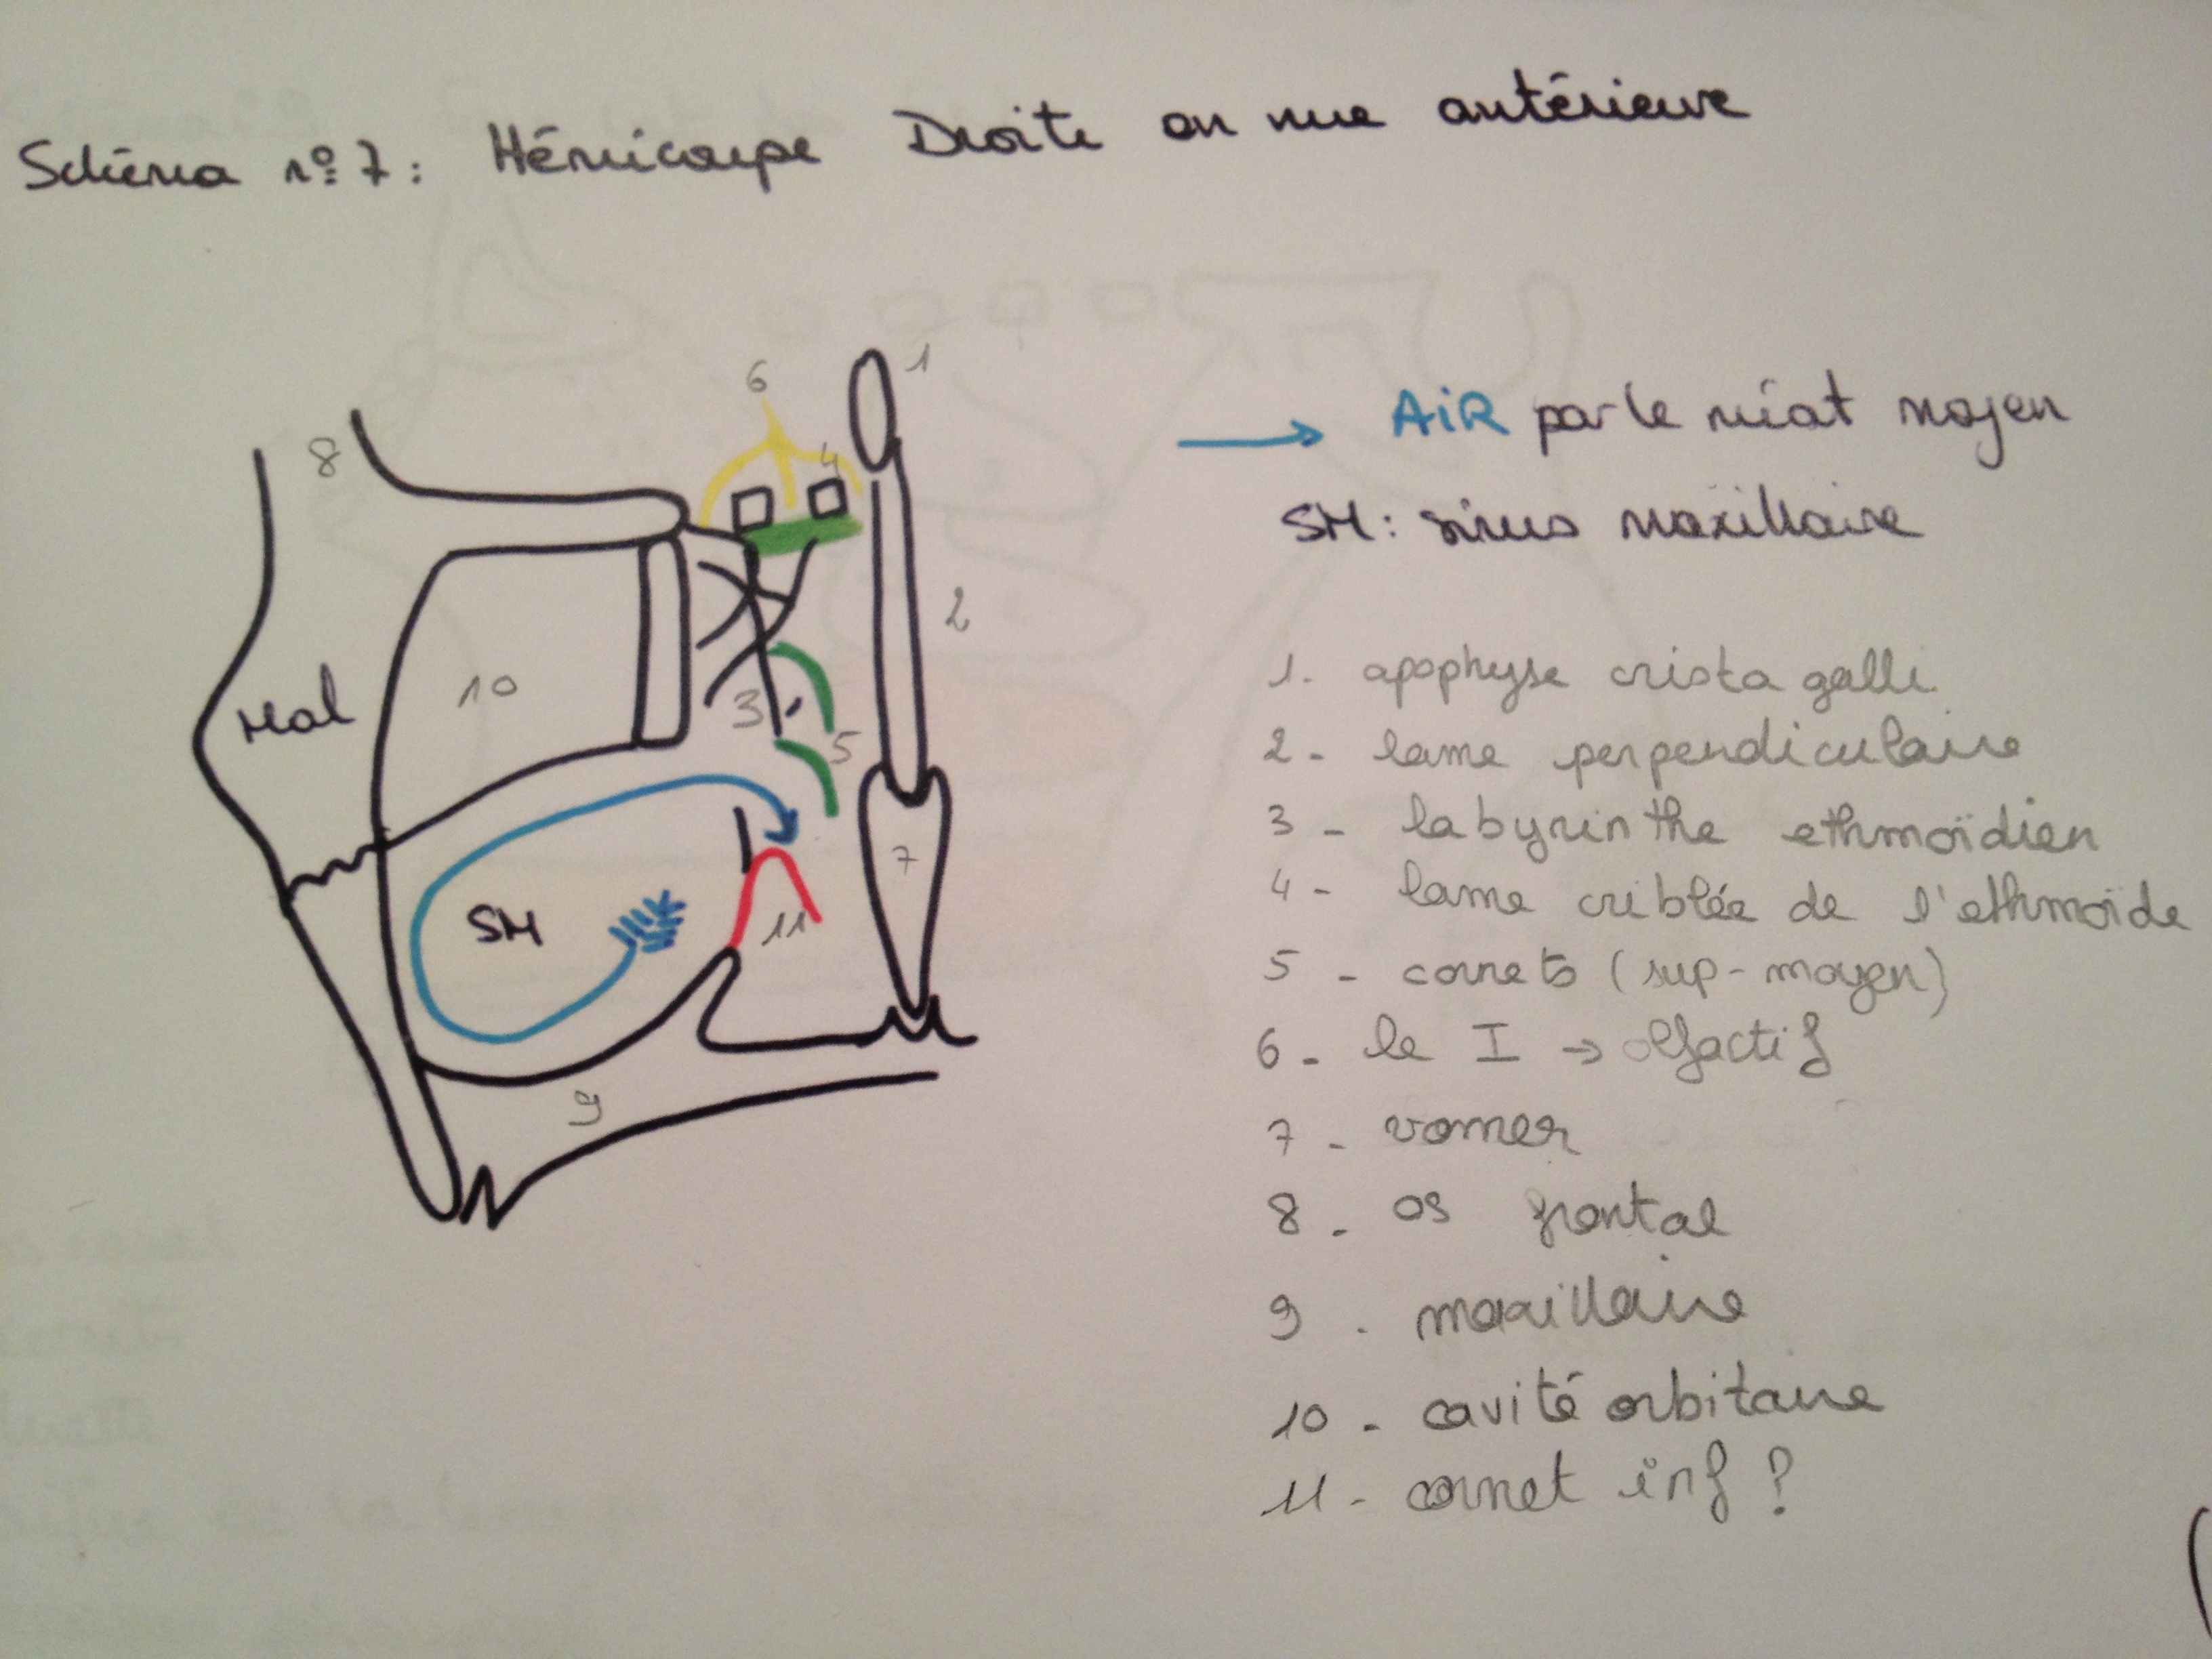 Schéma n° 7 : Hémicoupe Droite en vue antérieure
1
6
4
8
→ AiR par le méat moyen
SM : sinus maxillaire
2
10
Mal
3
5
SM
7
11
9
1. apophyse crista galli
2 - lame perpendiculaire
3 - labyrinthe ethmoïdien
4 - lame criblée de l'ethmoïde
5 - cornets (sup - moyen)
6 - le I → olfactif
7 - vomer
8 - os frontal
9 - maxillaire
10 - cavité orbitaire
11 - cornet inf ?